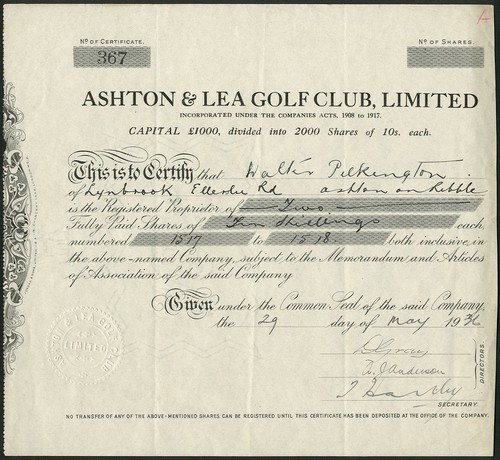 A
No OF CERTIFICATE.
No OF SHARES
367
ASHTON & LEA GOLF CLUB, LIMITED
INCORPORATED UNDER THE COMPANIES ACTS, 1908 to 1917.
CAPITAL £1000, divided into 2000 Shares of 10s. each.
This is to Certify that Walter Pilkington.
of Lynbrook Ellerslie Rd ashton on Ribble
is the Registered Proprietor of Two
Fully Paid Shares of Ten Shillings each,
numbered 1517 to 1518 both inclusive, in
the above-named Company, subject to the Memorandum and Articles
of Association of the said Company
Given under the Common Seal of the said Company,
the 29 day of May 1936
Anderson
DIRECTORS
LEA GOLF
LIMITED
SECRETARY.
NO TRANSFER OF ANY OF THE ABOVE-MENTIONED SHARES CAN BE REGISTERED UNTIL THIS CERTIFICATE HAS BEEN DEPOSITED AT THE OFFICE OF THE COMPANY.